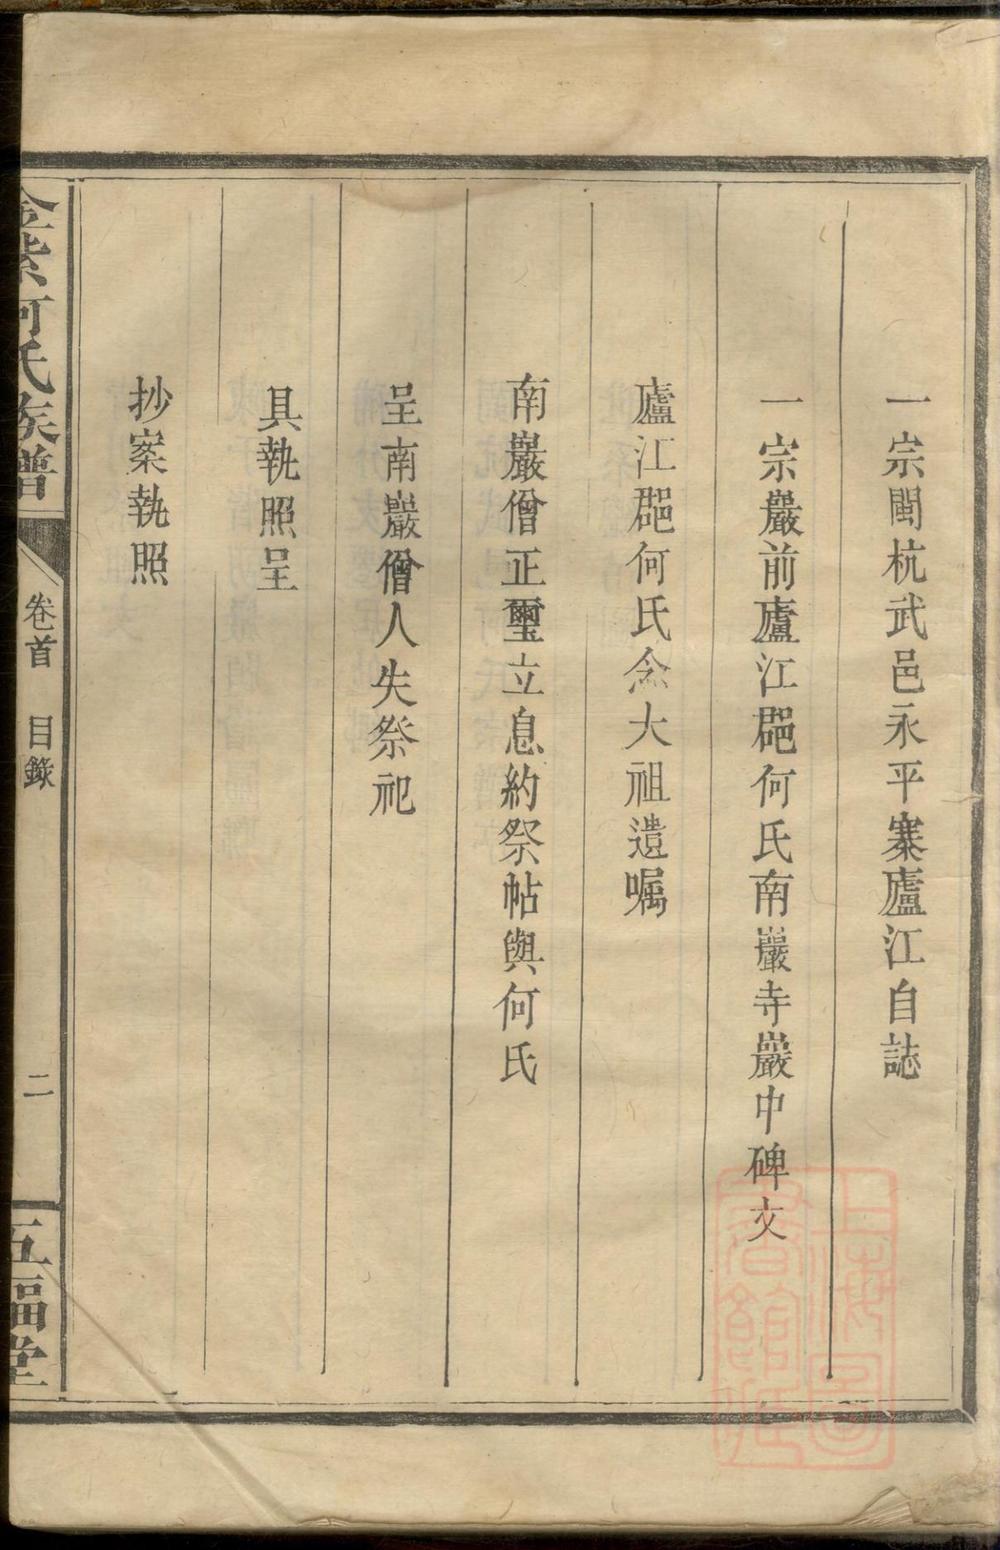 一宗閩杭武邑永平寨廬江自誌
一宗巖前廬江郡何氏南巖寺巖中碑文
廬江郡何氏念大祖遺囑
南巖僧正璽立息約祭帖與何氏
呈南巖僧人失祭祀
具執照呈
抄案執照
金紫何氏族譜
卷首 目錄
二
五福堂
上海圖書館藏